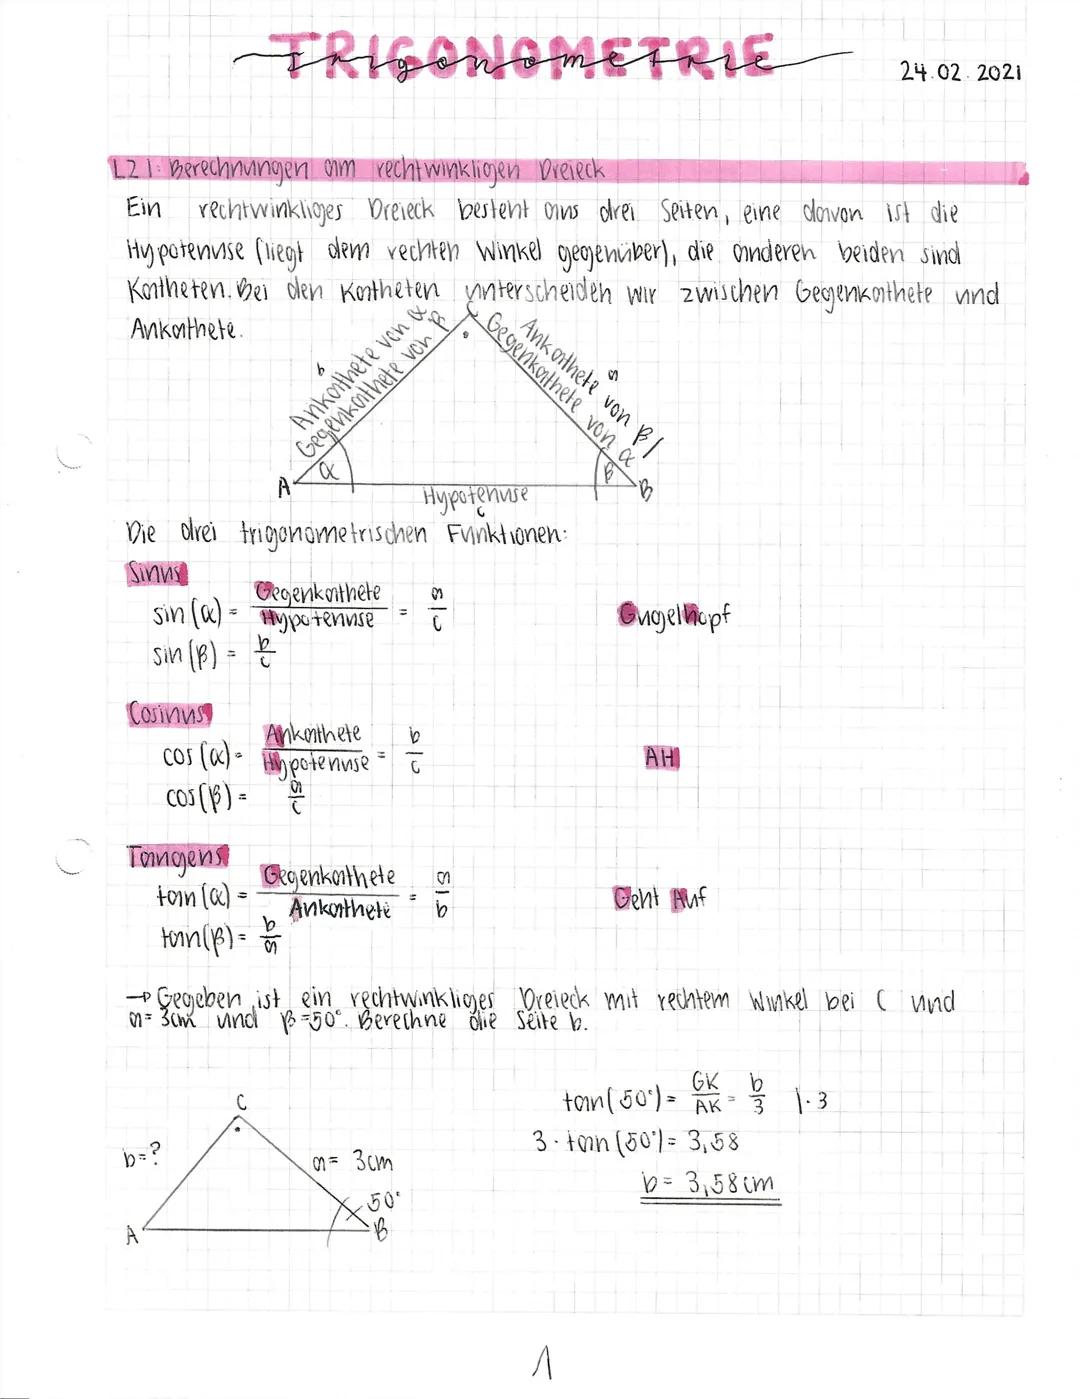 TRIGONOMETRIE
Trigonometrie
24.02.2021
L21: Berechnungen am rechtwinkligen Dreieck
Ein rechtwinkliges Dreieck besteht aus drei Seiten, eine davon ist die
Hypotenuse (liegt dem rechten Winkel gegenüber), die anderen beiden sind
Katheten. Bei den Katheten unterscheiden wir zwischen Gegenkathete und
Ankathete.
C
b
Ankathete von α
Gegenkathete von β
a
Ankathete von β/
Gegenkathete von α
A
α
β
B
Hypotenuse
c
Die drei trigonometrischen Funktionen:
Sinus
sin(α) = Gegenkathete / Hypotenuse = a/c
Gugelhopf
sin(β) = b/c
Cosinus
cos(α) = Ankathete / Hypotenuse = b/c
AH
cos(β) = a/c
Tangens
tan(α) = Gegenkathete / Ankathete = a/b
Geht Auf
tan(β) = b/a
→ Gegeben ist ein rechtwinkliges Dreieck mit rechtem Winkel bei C und
a= 3cm und β=50°. Berechne die Seite b.
C
b=?
a= 3cm
50°
A
B
tan(50°) = GK/AK = b/3 |·3
3·tan(50°) = 3,58
b= 3,58cm
1